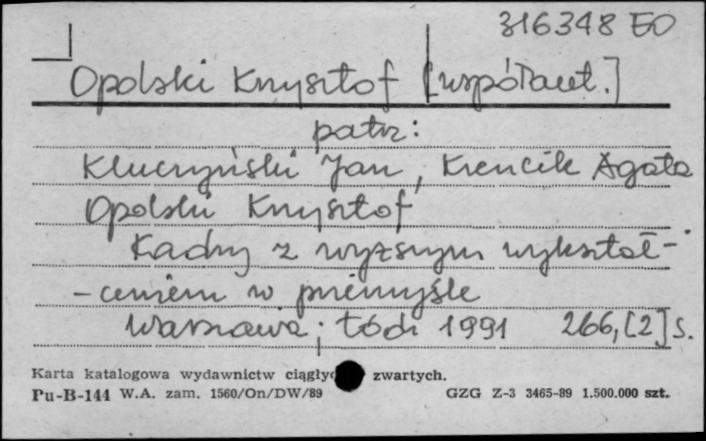 316348 EO
Opolski Krzysztof [współaut.]
patrz:
Kluczyński Jan, Krencik Agata
Opolski Krzysztof
Kadry z wyższym wykształ-
-ceniem w przemyśle
Warszawa; Łódź 1991 266, [2] s.
Karta katalogowa wydawnictw ciągły zwartych.
Pu-B-144 W.A. zam. 1560/On/DW/89 GZG Z-3 3465-89 1.500.000 szt.